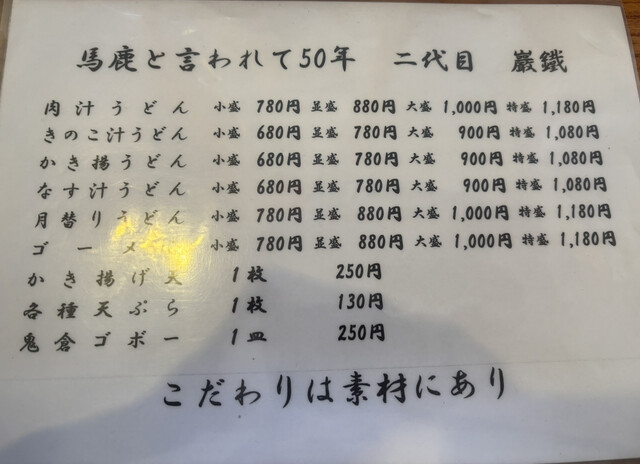 馬鹿と言われて50年 二代目 巌鐵
肉汁うどん 小盛 780円 並盛 880円 大盛 1,000円 特盛 1,180円
きのこ汁うどん 小盛 680円 並盛 780円 大盛 900円 特盛 1,080円
かき揚うどん 小盛 680円 並盛 780円 大盛 900円 特盛 1,080円
なす汁うどん 小盛 680円 並盛 780円 大盛 900円 特盛 1,080円
月替りうどん 小盛 780円 並盛 880円 大盛 1,000円 特盛 1,180円
ゴーメ 小盛 780円 並盛 880円 大盛 1,000円 特盛 1,180円
かき揚げ天 1枚 250円
各種天ぷら 1枚 130円
鬼倉ゴボー 1皿 250円
こだわりは素材にあり